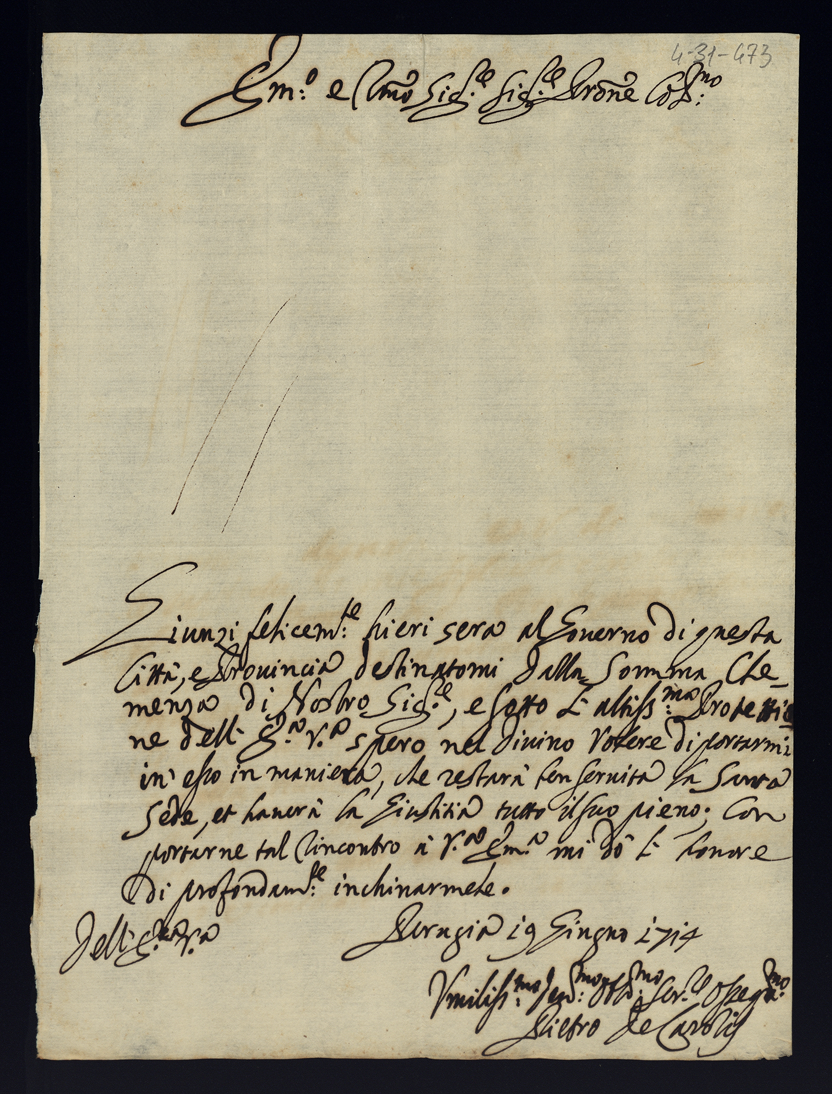 4-31-473
Em:º e Rmõ Sig:re Sig:re Prõne Col:mo
Giunzi felicem:te hieri sera al Governo di questa
Città, e Provincia destinatomi dalla Somma Cle-
menza di Nostro Sig:re, e sotto l'altiss:ma Protettio
ne dell' E.ª V.ª spero nel divino Volere di portarmi
in' esso in maniera, che restarà ben servita la Santa
Sede, et haverà la Giustitia tutto il suo pieno; Con
portarne tal rincontro à V.ª Em.ª mi dò l' honore
di profondam:te inchinarmele.
Dell' E.ª V.ª
Perugia 19 Giugno 1714
Umiliss:mo Obl:mo Ser:re Osseq:mo
Pietro de Carolis